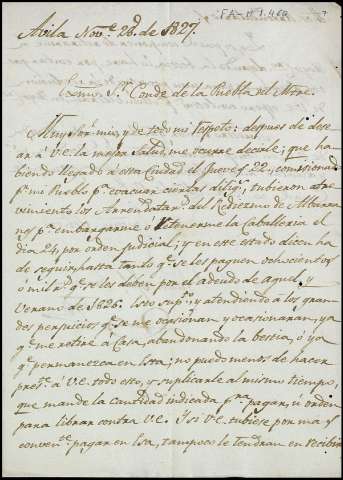 Avila Nov.e 28 de 1827.
Exmo. S.r Conde de la Puebla del Mtre.
Muy Sor. mio, y de todo mi respeto: despues de dese
ar á V.E. la mejor Salud, me ocurre decirle; que ha
biendo llegado á esta Ciudad el Jueves 22., comisionado
p.r mi Pueblo p.a evacuar ciertas dilig.s, tubieron atre
vimiento los Arrendatar.s del de Albarra
nos p.a embargarme ó retenerme la Caballeria el
dia 24, por orden judicial; y en este estado dicen ha
de seguir hasta tanto q.e se les paguen ochocientos
ó mil r.s q.e se les deben por el adeudo de aquel, y
Verano de 1826. Esto sup.to, y atendiendo á los gran
des perjuicios q.e se me ocasionan, y ocasionaran, ya
q.e me retire á Casa, abandonando la bestia, ó ya
q.e permanezca en Esta; no puedo menos de hacer
pres.te á V.E. todo esto, y suplicarle al mismo tiempo,
que mande la cantidad indicada p.ra pagar, ú orden
para librar contra V.E. Y si V.E. tubiese por mas
conven.te pagar en Esa, tampoco le tendran en recibir